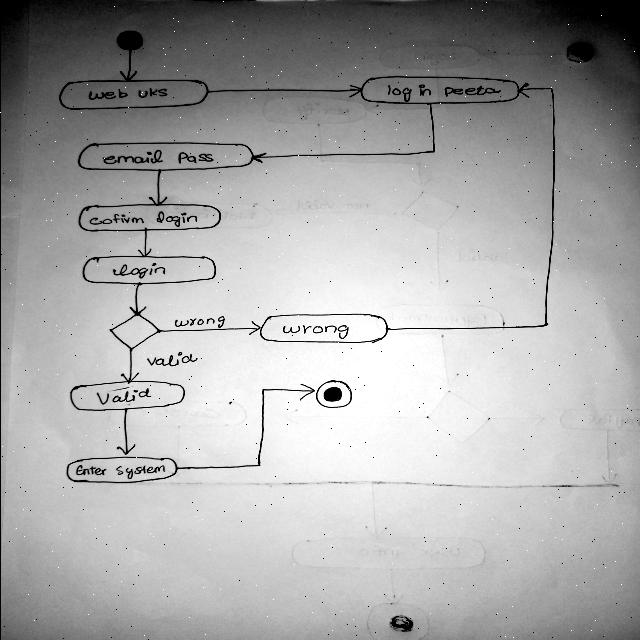 web uks
log in peeta
email pass
cofirm login
login
wrong
wrong
valid
Valid
Enter System